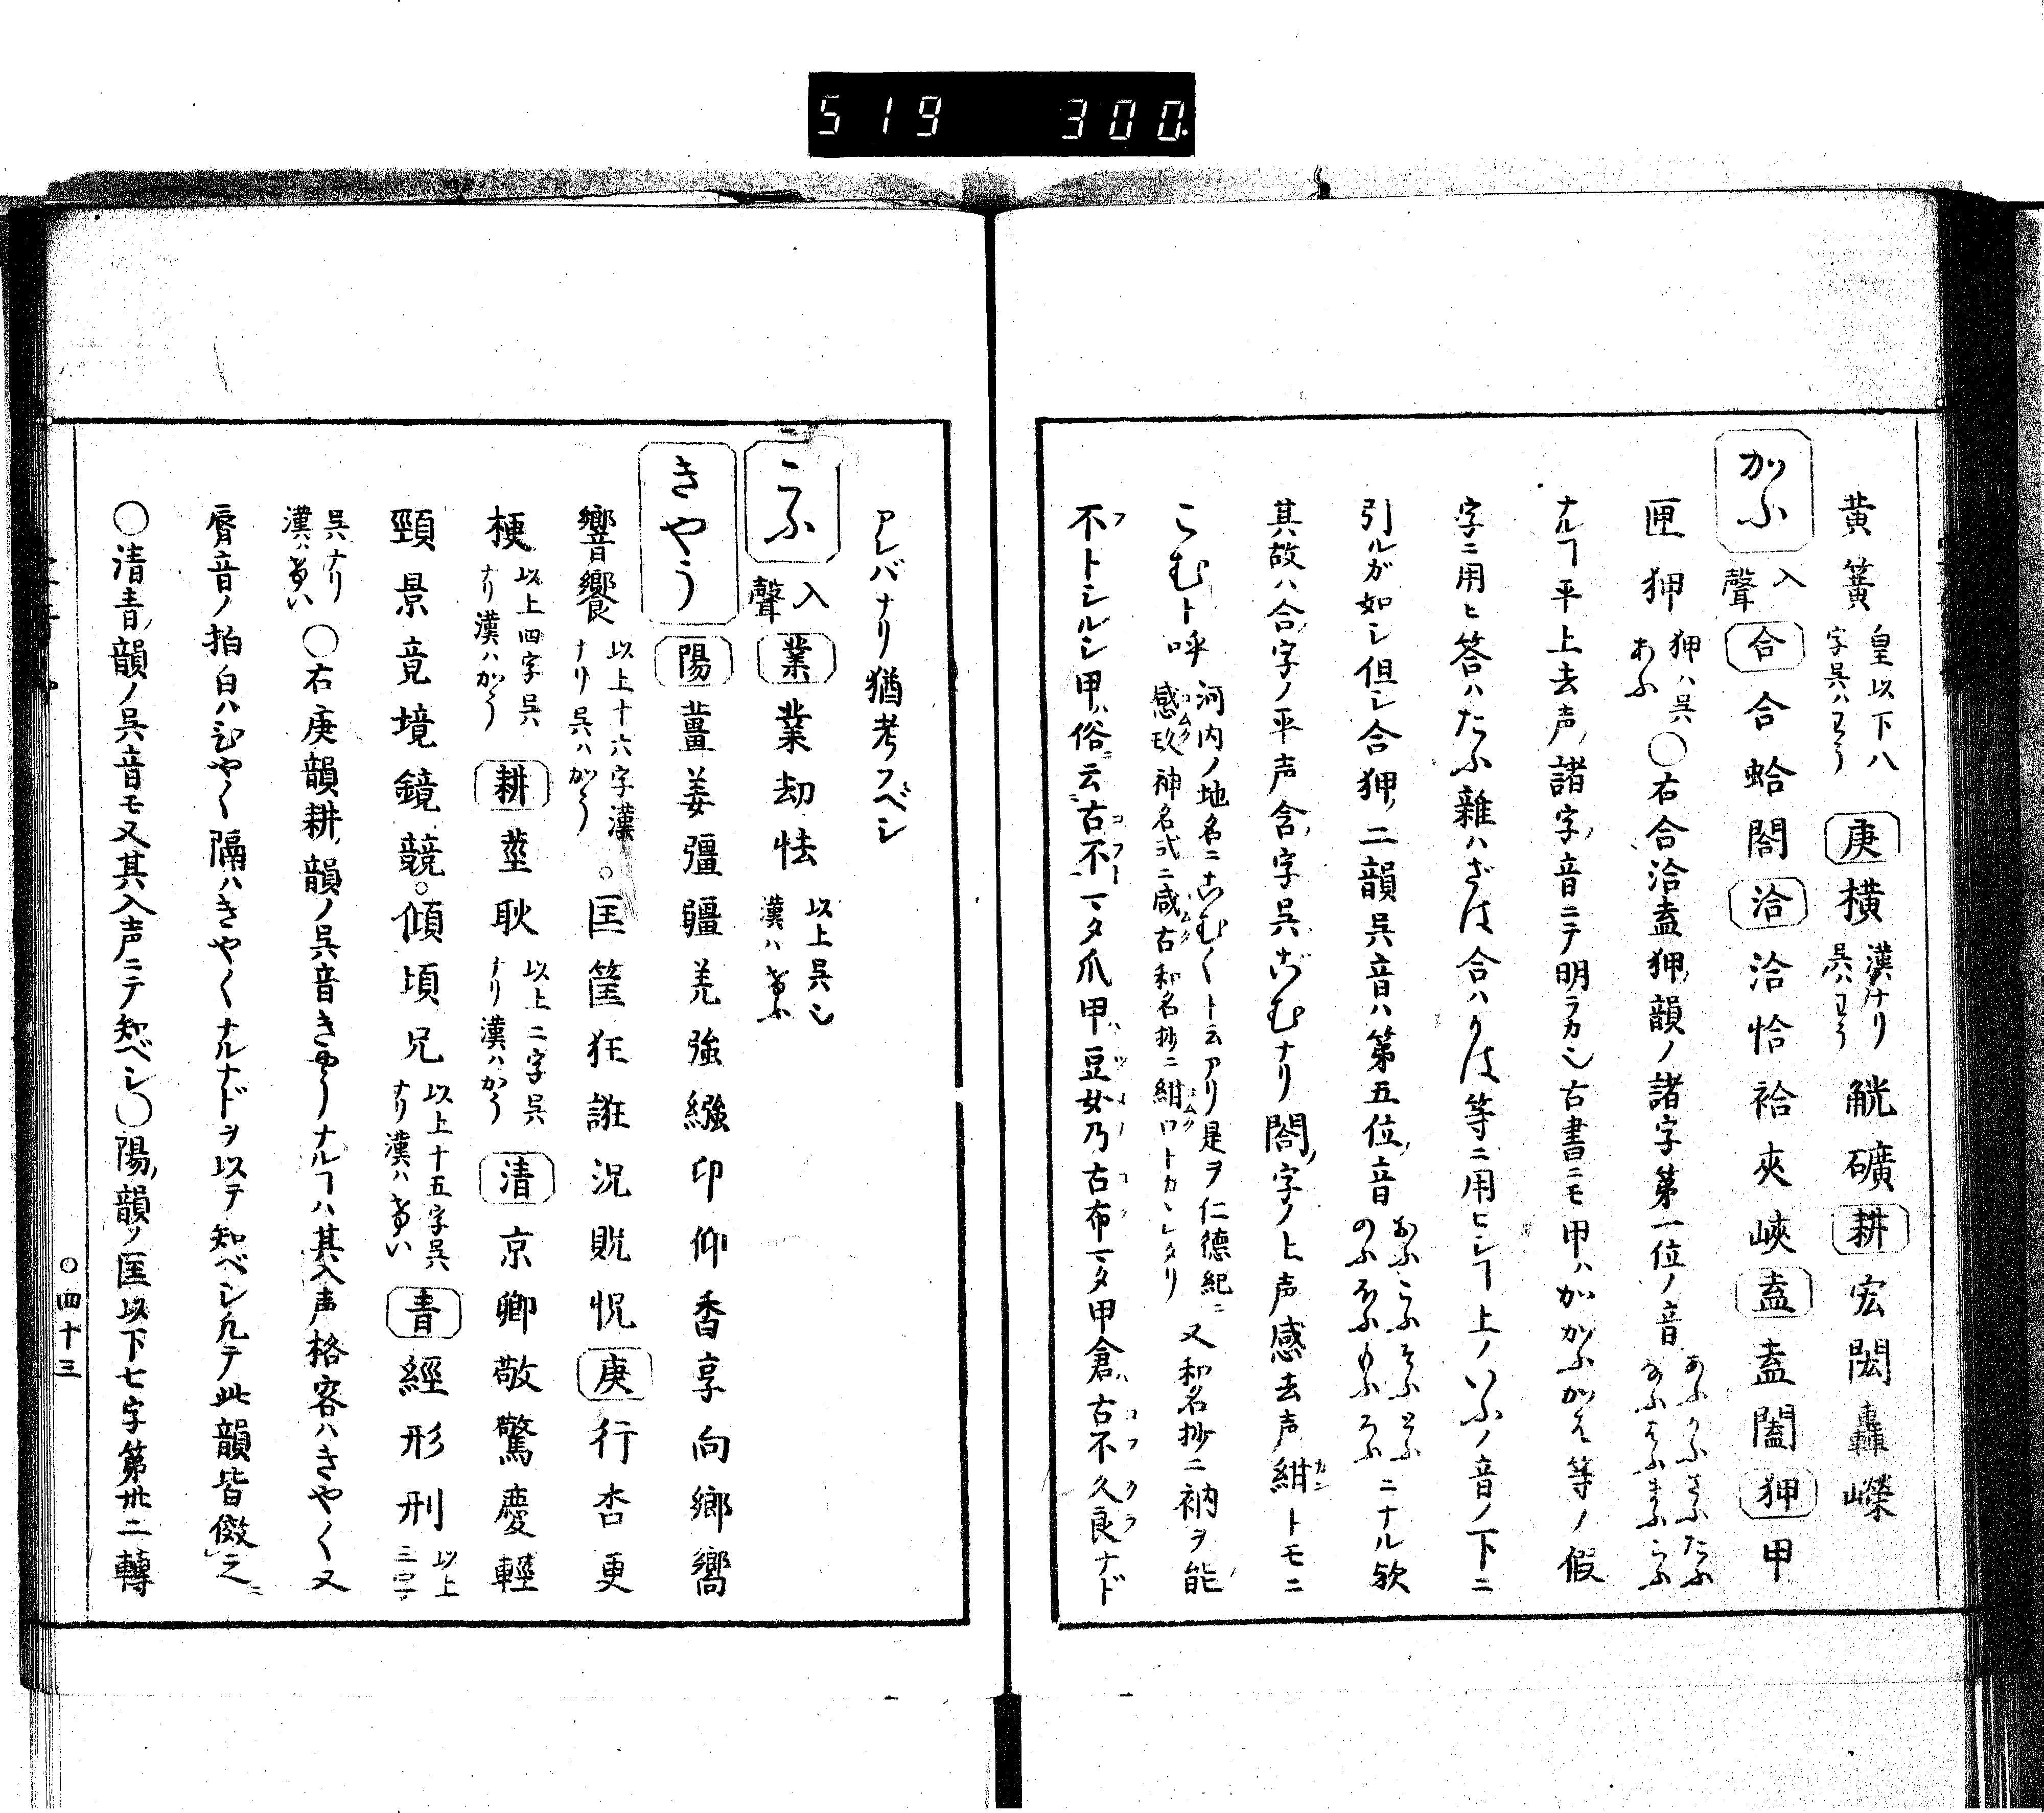 519 300
黄簧 皇以下八字呉ハわう 庚 横 漢ナリ呉ハわう 觥礦 耕 宏閎轟嶸
かふ 入聲 合 合蛤閤 洽 洽恰袷夾峽 盍 盍闔 狎 甲
匣狎 狎ハ呉あふ ○右合洽盍狎ノ韻ノ諸字第一位ノ音 あふかふさふたふなふはふまふらふ
ナルヿ平上去声ノ諸字ノ音ニテ明ラカ也古書ニモ甲ハかがふがへ等ノ假
字ニ用ヒ答ハたふ雜ハざは合ハかは等ニ用ヒシヿ上ノいふノ音ノ下ニ
引ルガ如シ但シ合狎ノ二韻呉音ハ第五位ノ音 おふこふそふとふのふほふもふろふ ニナル欤
其故ハ合ノ字ノ平声含ノ字呉ごむナリ閤ノ字ノ上声感去声紺トモニ
こむト呼 河内ノ地名ニこむくト云アリ是ヲ仁德紀ニ感玖神名式ニ咸古和名抄ニ紺口トカヽレタリ 又和名抄ニ衲ヲ能
不トシルシ甲ノ俗ニ云古不一マタ爪甲ハ豆女乃古布一マタ甲倉ハ古不久良ナド
アレバナリ猶考フベシ
こふ 入聲 業 業劫怯 以上呉也漢ハけふ
きやう 陽 薑姜彊疆羌強繦卬仰香享向鄉嚮
響饗 以上十六字漢ナリ呉ハかう ○匡筐狂誑況貺怳 庚 行杏更
梗 以上四字呉ナリ漢ハかう 耕 莖耿 以上二字呉ナリ漢ハかう 清 京卿敬驚慶輕
頸景竟境鏡競○傾頃兄 以上十五字呉ナリ漢ハけい 青 經形刑 以上三字
呉ナリ漢ハけい ○右庚ノ韻耕ノ韻ノ呉音きやうナルヿハ其入声格客ハきやく又
脣音ノ拍白ハひやく隔ハきやくナルナドヲ以テ知ベシ凡テ此韻皆傚之
○清青ノ韻ノ呉音モ又其入声ニテ知ベシ○陽ノ韻ノ匡以下七字第卅二轉
○四十三